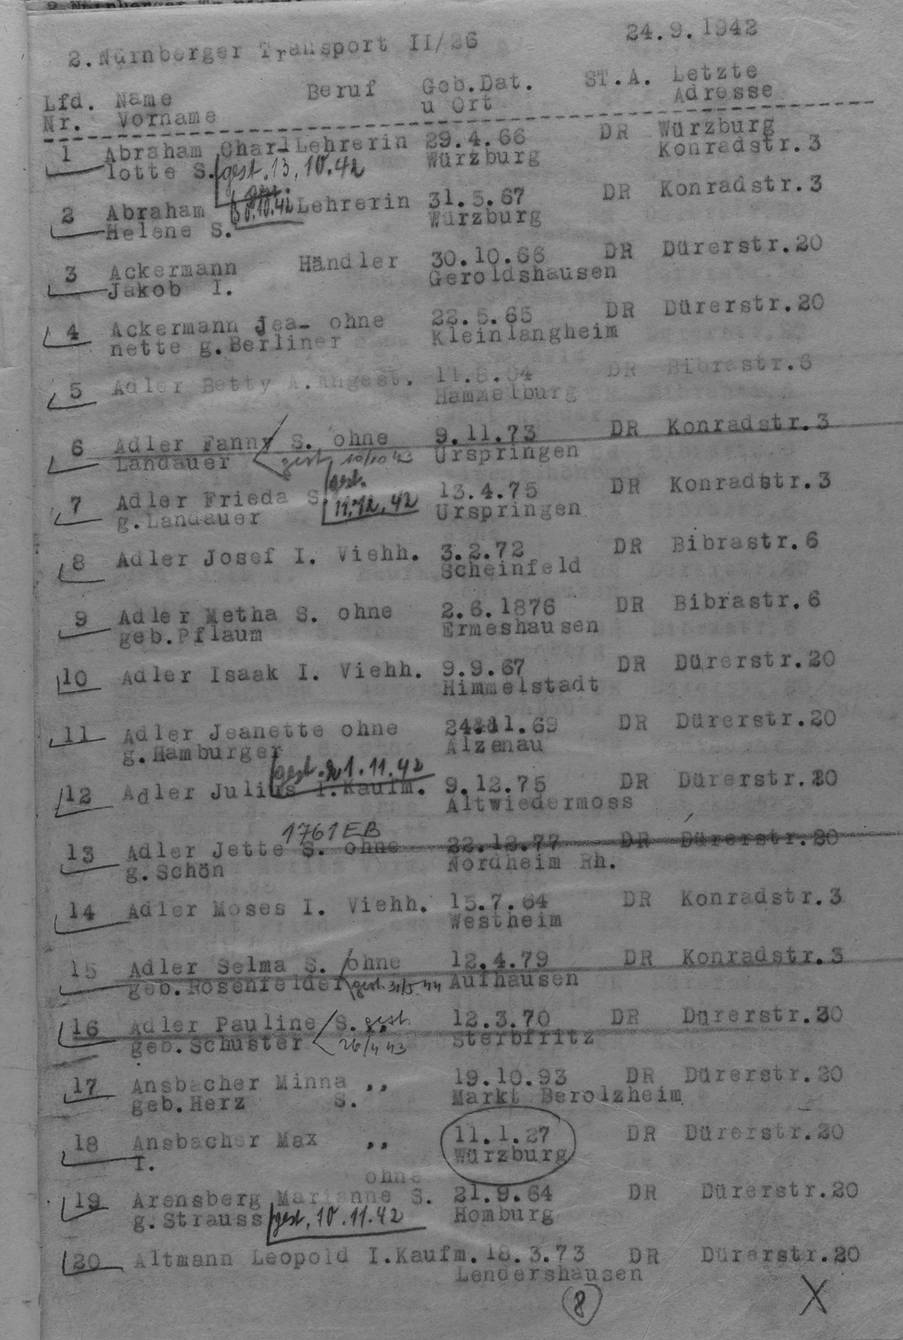 2.Nürnberger Transport II/26 24.9.1942
Lfd. Name Beruf Geb.Dat. ST.A. Letzte
Nr. Vorname u Ort Adresse
1 Abraham Charl Lehrerin 29.4.66 DR Würzburg
lotte S. gest. 13.10.42 Würzburg Konradstr.3
gest.
2 Abraham 8.10.42 Lehrerin 31.5.67 DR Konradstr.3
Helene S. Würzburg
3 Ackermann Händler 30.10.66 DR Dürerstr.20
Jakob I. Geroldshausen
4 Ackermann Jea- ohne 22.5.65 DR Dürerstr.20
nette g.Berliner Kleinlangheim
5 Adler Betty A.Angest. 11.6.04 DR Bibrastr.6
Hammelburg
6 Adler Fanny S. ohne 9.11.73 DR Konradstr.3
Landauer gest 10/10 43 Urspringen
gest.
7 Adler Frieda S. 13.4.75 DR Konradstr.3
g.Landauer 11.12.42 Urspringen
8 Adler Josef I. Viehh. 3.2.72 DR Bibrastr.6
Scheinfeld
9 Adler Metha S. ohne 2.6.1876 DR Bibrastr.6
geb.Pflaum Ermeshausen
10 Adler Isaak I. Viehh. 9.9.67 DR Dürerstr.20
Himmelstadt
11 Adler Jeanette ohne DR Dürerstr.20
g.Hamburger Alzenau
gest. 21.11.42
12 Adler Julius I.Kaufm. 9.12.75 DR Dürerstr.20
Altwiedermoss
1761 EB
13 Adler Jette S. ohne 22.12.77 DR Dürerstr.20
g.Schön Nordheim Rh.
14 Adler Moses I. Viehh. 15.7.64 DR Konradstr.3
Westheim
15 Adler Selma S. ohne 12.4.79 DR Konradstr.3
geb.Rosenfelder gest 31/5 44 Aufhausen
16 Adler Pauline S. gest. 12.3.70 DR Dürerstr.20
geb.Schuster 26/4 43 Sterbfritz
17 Ansbacher Minna ,, 19.10.93 DR Dürerstr.20
geb.Herz S. Markt Berolzheim
18 Ansbacher Max ,, 11.1.27 DR Dürerstr.20
I. Würzburg
ohne
19 Arensberg Marianne S. 21.9.64 DR Dürerstr.20
g.Strauss gest. 10.11.42 Homburg
20 Altmann Leopold I.Kaufm.18.3.73 DR Dürerstr.20
Lendershausen
8 X